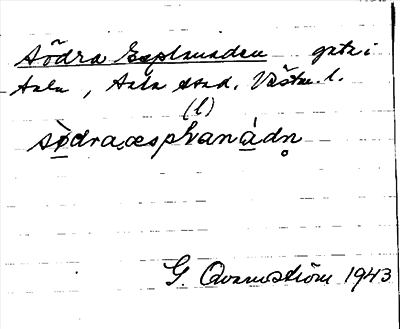 Södra Esplanaden gata i
Sala, Sala stad. Västm. l.
(l)
sò̤draæsplaná̤dn̥
G. Qvarnström 1943